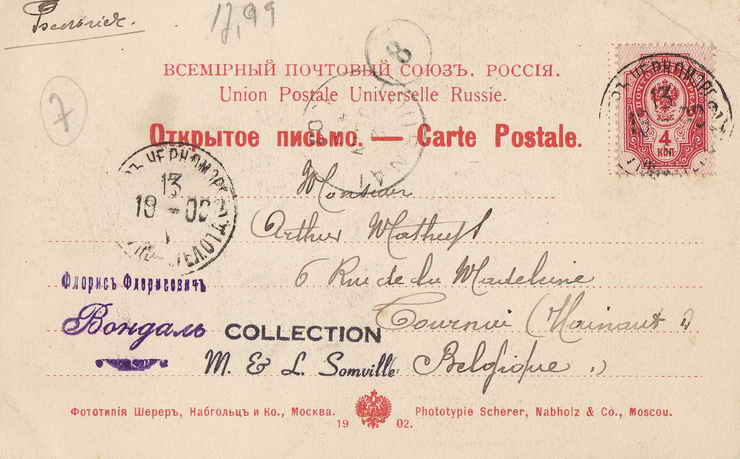 17,99
8
ВСЕМІРНЫЙ ПОЧТОВЫЙ СОЮЗЪ. РОССІЯ.
Union Postale Universelle Russie.
7
Открытое письмо. — Carte Postale.
4
КОП
13
19 - 00
Monsieur
Arthur
6 Rue de la Madeleine
Флорисъ Флорисовичъ
Вондаль
Tournai (Hainaut)
COLLECTION
M. & L. Somville
Belgique
Фототипія Шереръ, Набгольцъ и Ко., Москва.
Phototypie Scherer, Nabholz & Co., Moscou.
19 02.